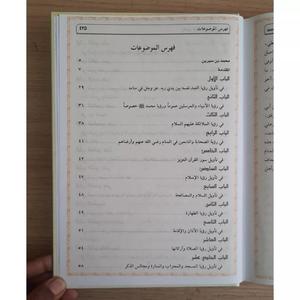 فهرس الموضوعات
٤٣٥
فهرس الموضوعات
محمد بن سيرين ٥
مقدمة ٧
الباب الأول
في تأويل رؤيا العبد نفسه بين يدي ربه عز وجل في منامه ٢٩
الباب الثاني
في تأويل رؤيا الأنبياء والمرسلين عموماً ورؤيا محمد ﷺ خصوصاً
الباب الثالث
في تأويل رؤيا الملائكة عليهم السلام
الباب الرابع
في تأويل رؤيا الصحابة والتابعين في المنام رضي الله عنهم وأرضاهم
الباب الخامس
في تأويل سور القرآن العزيز
الباب السادس
في تأويل رؤيا الإسلام
الباب السابع
في تأويل السلام والمصافحة
الباب الثامن
في تأويل رؤيا الطهارة
الباب التاسع
في تأويل رؤيا الأذان والإقامة
الباب العاشر
في تأويل رؤيا الصلاة وأركانها
الباب الحادي عشر
في تأويل رؤيا المسجد والمحراب والمنارة ومجالس الذكر